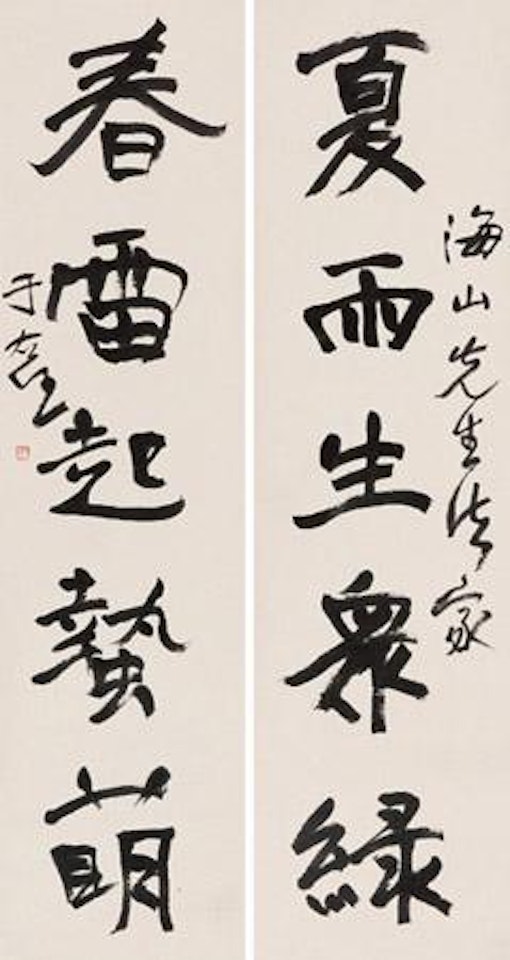 海山先生法家
夏雨生眾綠
春雷起蟄萌
于右任